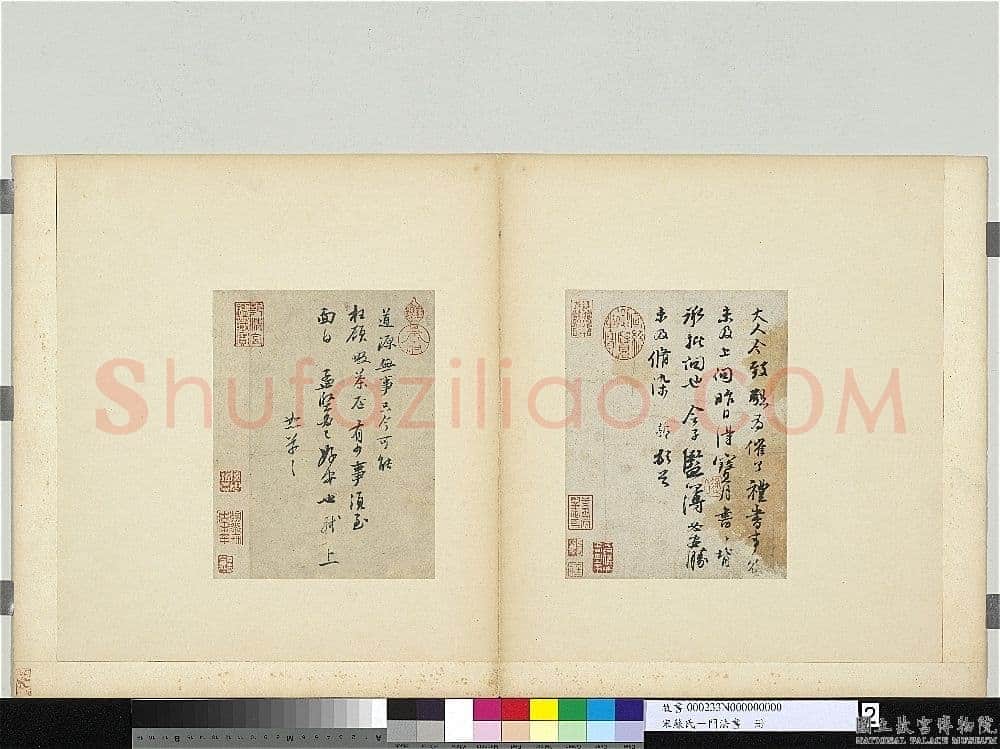 大人令致懇為催了禮書事冗
未及上問昨日得寶月書書背
承批問也令子監簿必安勝
未及脩染 軾頓首
道源無事只今可能
枉顧啜茶否有少事須至
面白 孟堅必已好安也軾上
恕草草
Shufaziliao.COM
故書 000233N000000000
宋蘇氏一門法書
2
國立故宮博物院
NATIONAL PALACE MUSEUM